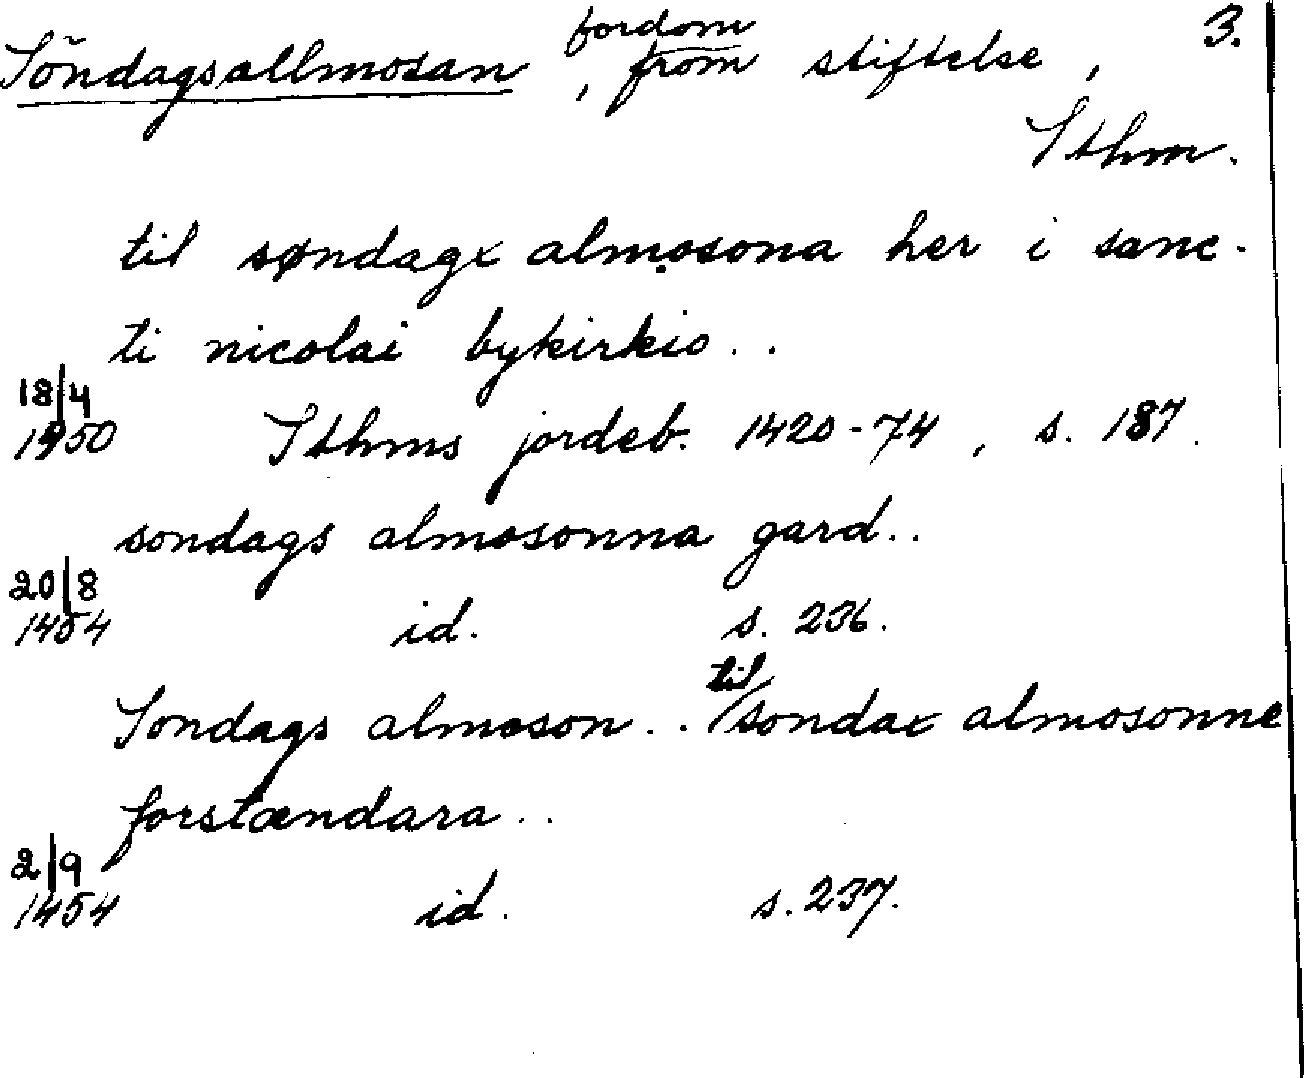 3.
fordom
Söndagsallmosan, from stiftelse,
Sthm.
til søndagx almosona her i sanc-
ti nicolai bykirkio..
18/4
1450 Sthms jordeb. 1420-74, s. 187.
sondags almosonna gard..
20/8
1454 id. s. 236.
til
Sondags almoson.. sondax almosonne
forstændara..
2/9
1454 id. s. 237.